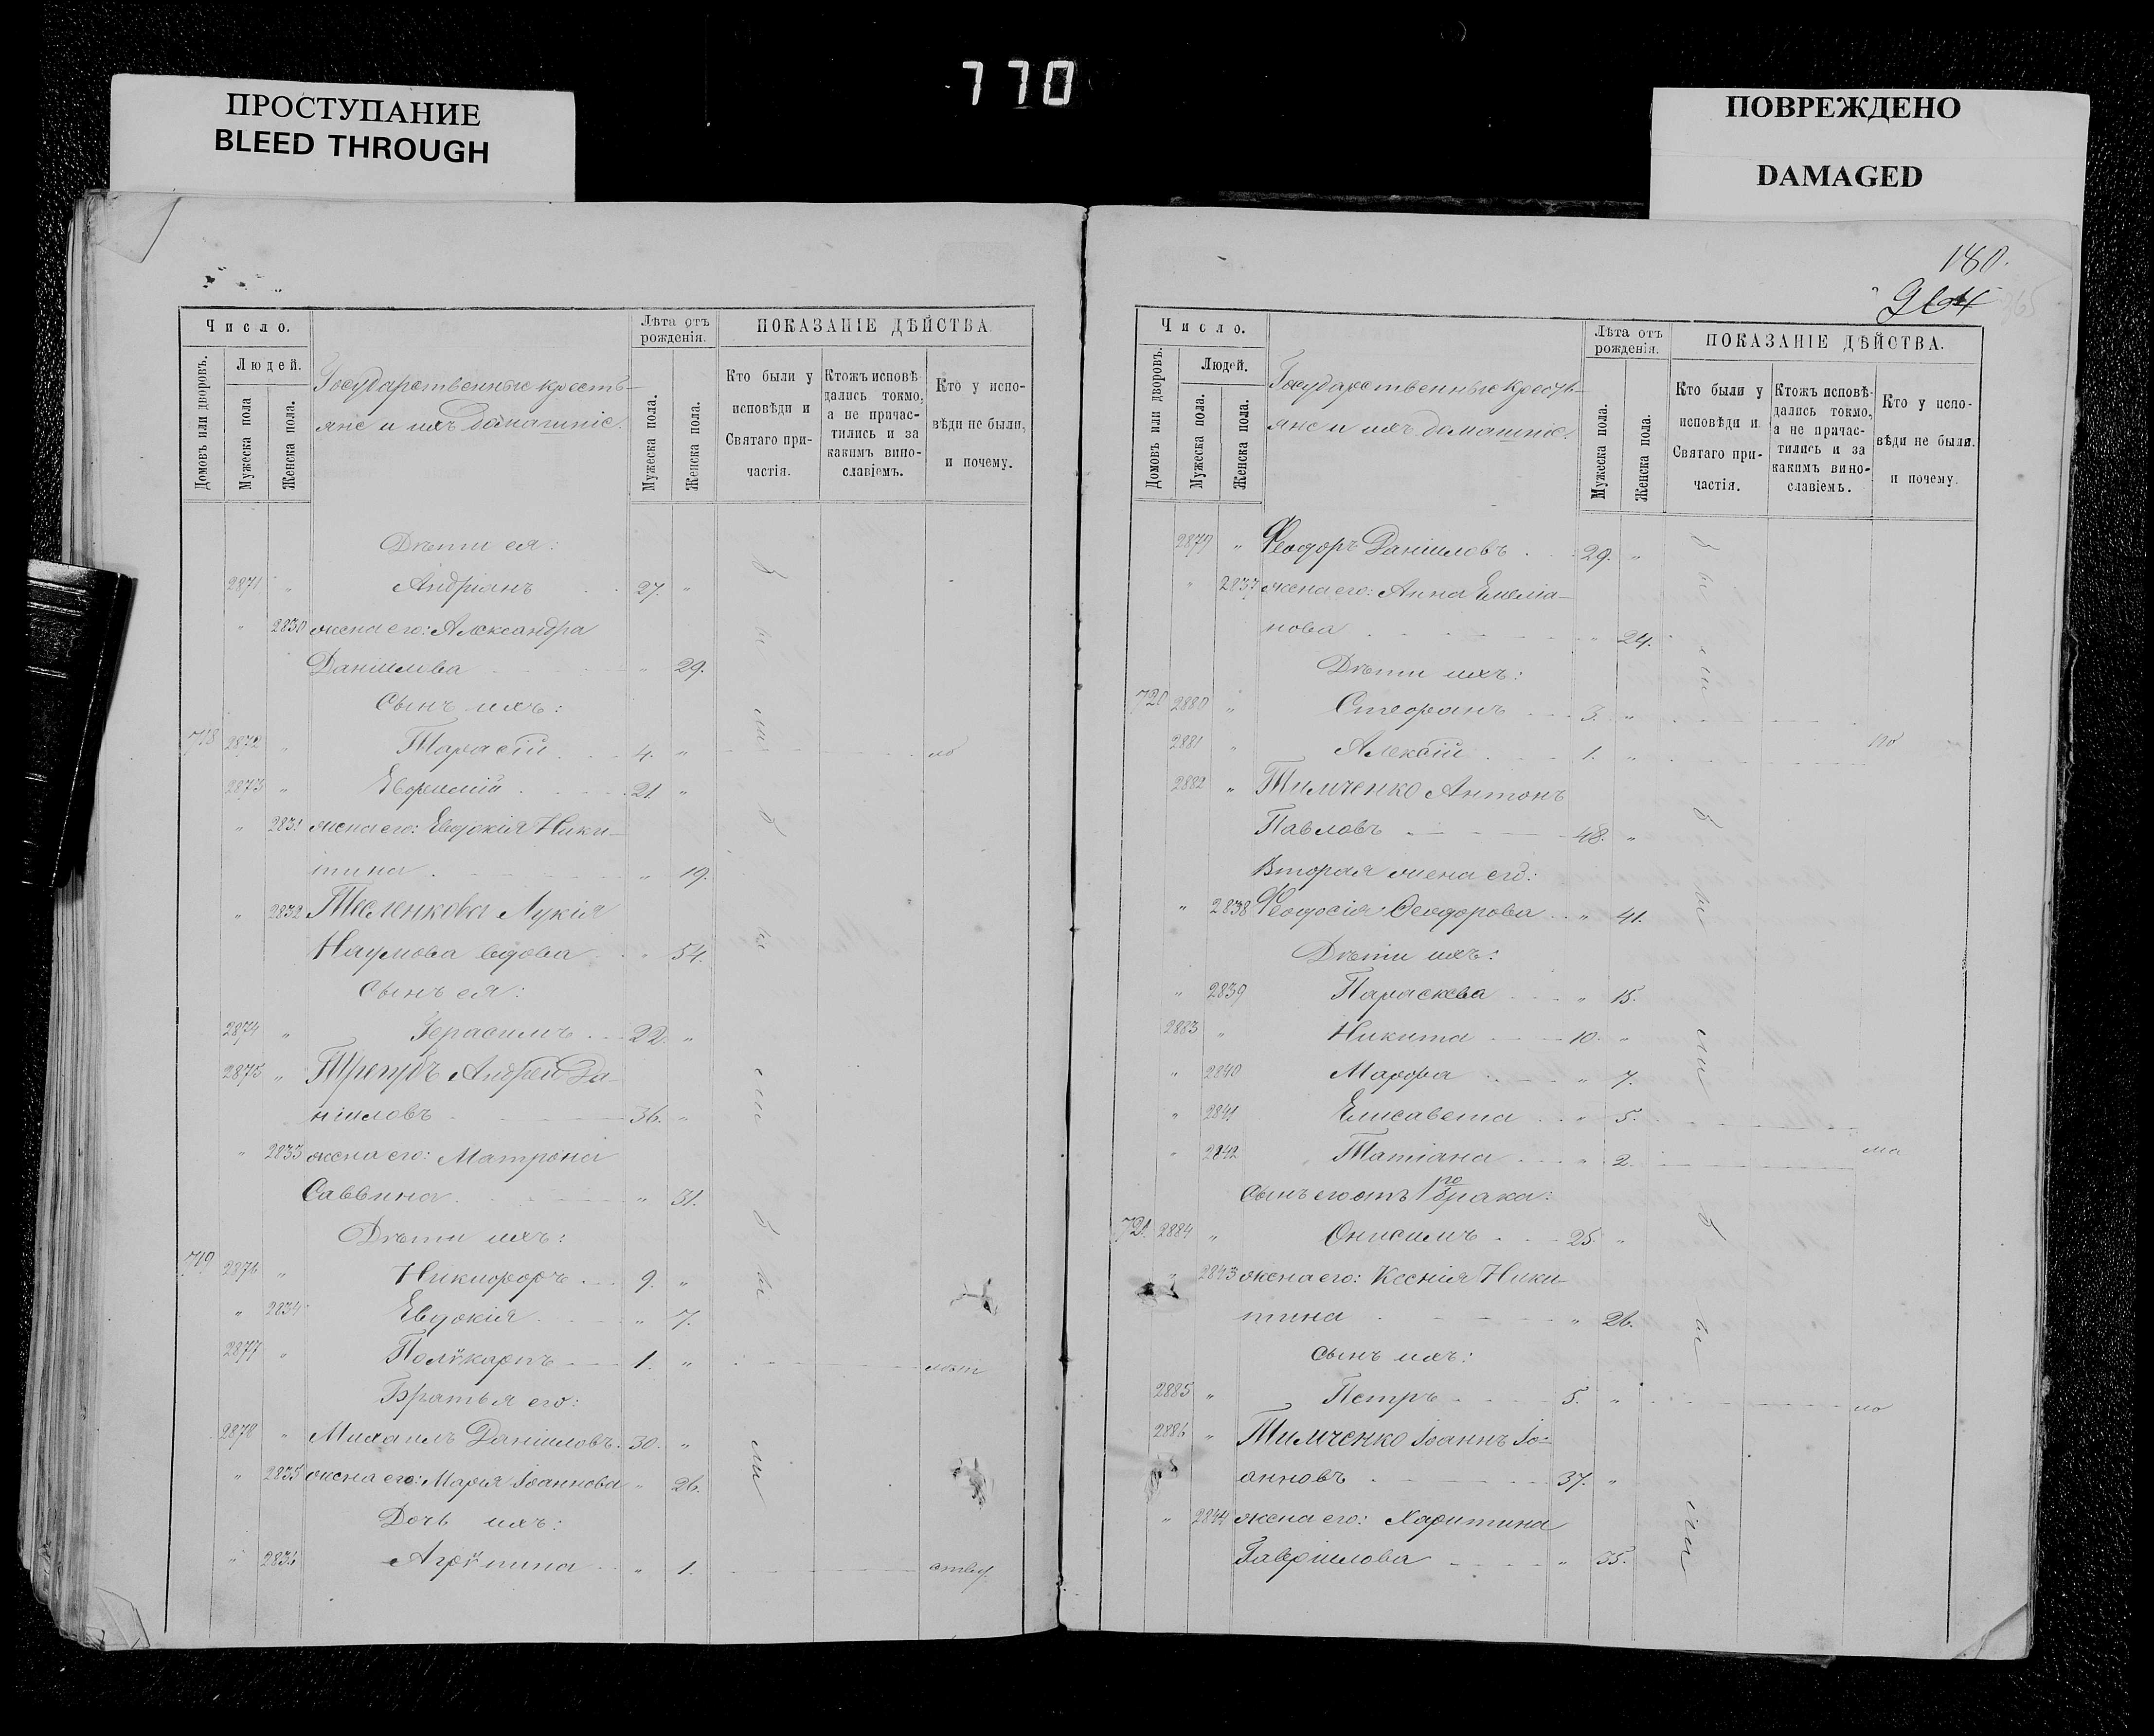 770
ПРОСТУПАНИЕ
BLEED THROUGH
ПОВРЕЖДЕНО
DAMAGED
Число.
Домовъ или дворовъ.
Людей.
Мужеска пола
Женска пола.
Государственные кресть-
яне и ихъ домашніе.
Лѣта отъ рожденія.
Мужеска пола.
Женска пола.
ПОКАЗАНІЕ ДѢЙСТВА
Кто были у исповѣди и Святаго при-частія.
Ктожъ исповѣ-дались токмо, а не причас-тились и за какимъ вино-славіемъ.
Кто у испо-вѣди не были, и почему.
Дѣти ея:
2871 " Андріанъ 27. "
" 2830 жена его: Александра
Даніилова " 29.
Сынъ ихъ:
718 2872 " Тарасій 4. " мо
2873 " Евфимій 21. "
" 2831 жена его: Евдокія Ники-
тина " 19.
" 2832 Тесленкова Лукія
Наумова вдова " 54.
Сынъ ея:
2874 " Герасимъ 22. "
2875 " Андрей Да-
ніиловъ 36. "
" 2833 жена его: Матрона
Саввина " 31.
Дѣти ихъ:
719 2876 " Никифоръ 9. "
" 2834 Евдокія " 7.
2877 " Полѵкарпъ 1. "
Братья его:
2878 " Михаилъ Даніиловъ 30. "
" 2835 жена его: Марія Іоаннова " 26.
Дочь ихъ:
" 2836 Агрѵпина " 1.
были были были
180.
Число.
Домовъ или дворовъ.
Людей.
Мужеска пола.
Женска пола.
Государственные кресть-
яне и ихъ домашніе.
Лѣта отъ рожденія.
Мужеска пола.
Женска пола.
ПОКАЗАНІЕ ДѢЙСТВА.
Кто были у исповѣди и Святаго при-частія.
Ктожъ исповѣ-дались токмо, а не причас-тились и за какимъ вино-славіемъ.
Кто у испо-вѣди не были. и почему.
2879 " Ѳеодоръ Даніиловъ 29. "
" 2837 жена его: Анна Емелiа-
нова " 24.
Дѣти ихъ:
720 2880 " Стефанъ 3. "
2881 " Алексій 1. "
2882 " Тимченко Антонъ
Павловъ 48. "
Вторая жена его:
" 2838 Ѳеодосія Ѳеодорова " 41.
Дѣти ихъ:
" 2839 Параскева " 15.
2883 " Никита 10. "
" 2840 Марфа " 7.
" 2841 Елисавета " 5.
" 2842 Татіана " 2. ма
Сынъ его отъ 1го брака:
721. 2884 " Онисимъ 25. "
" 2843 жена его: Ксенія Ники-
тина " 26.
Сынъ ихъ:
2885 " Петръ 5. " ло
2886 " Тимченко Іоаннъ Іо-
анновъ 37. "
" 2844 жена его: Харитина
Гавріилова " 35.
были были были